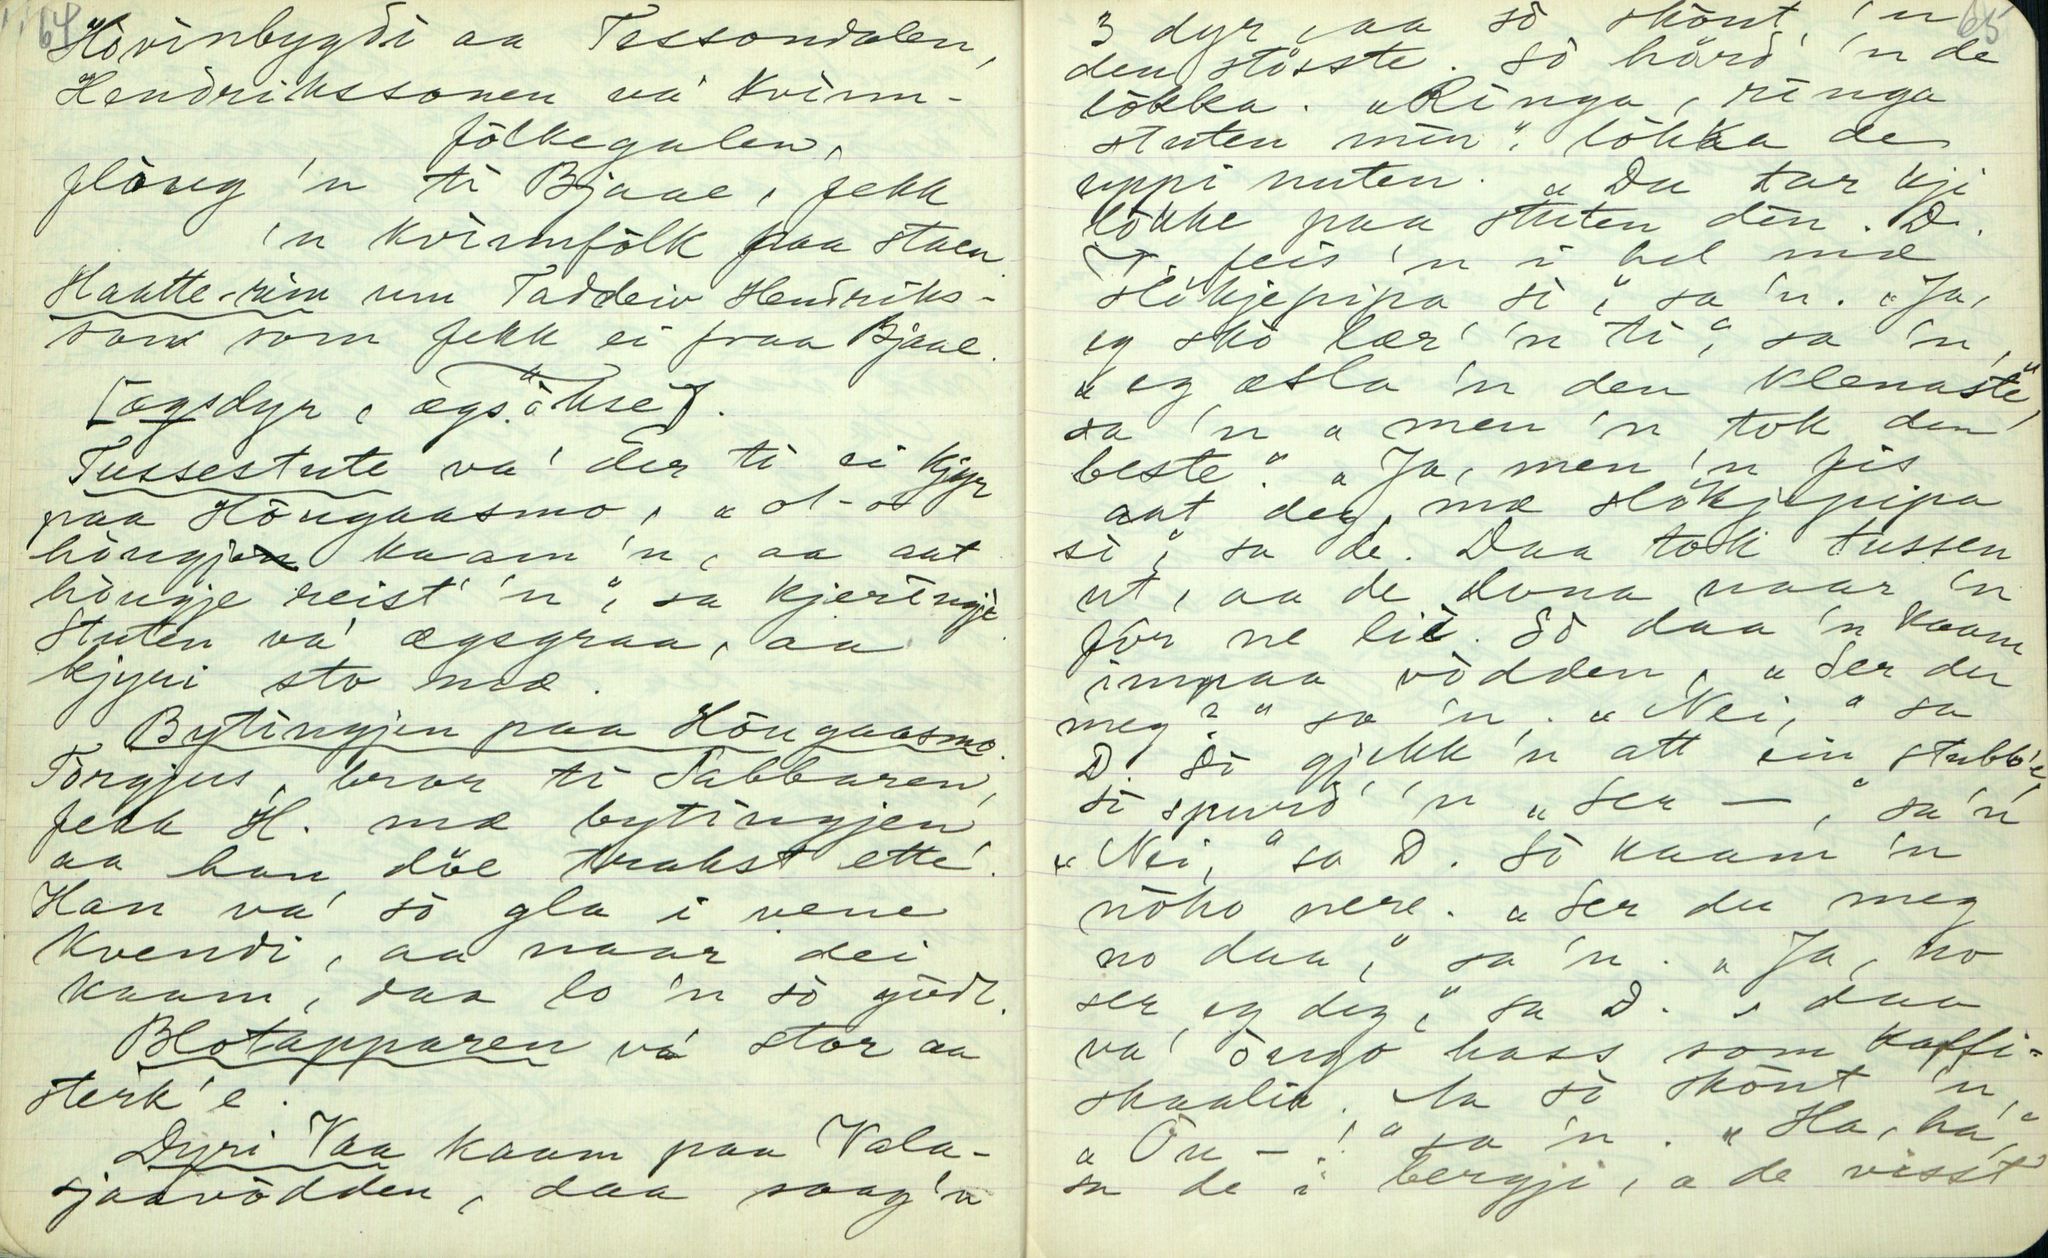 64
Hovinbygdi aa Tessondalen,
Hendrikssonen va' kvinn-
fôlkegalen,
flaug 'n ti Bjaae, fekk
'n kvinnfôlk paa staen.
Haatte-rim um Taddeiv Hendriks-
son som fekk ei fraa Bjaae.
[ægsdyr, ægsôkse].
Tussestute va' der ti ei kjyr
paa Hôugaasmo, "ot-ot
hôugjen kaam 'n, aa aat
hôugje reist' 'n", sa kjeringje.
Stuten va' ægsgraa, aa
kjyri sto mæ.
Bytingjen paa Hôugaasmo.
Torgjus, bror ti Tabbaren,
fekk H. mæ bytingjen,
aa han döe trakst ette'.
Han va' sô gla i vene
kvendi, aa naar dei
kaam, daa lo 'n sô gôdt.
Blotapparen va stor aa
sterk'e.
Dyri Vaa kaam paa Vala-
sjaavôdden, daa saag'n
65
3 dyr, aa sô skönt 'n
den stösste. Sô hörd' 'n de
lôkka. "Ringa, ringa
stuten min", lôkka de
uppi nuten. "Du tar kji
lôkke paa stuten din. D.
V. feis 'n i hel mæ
slökjepipa si", sa 'n. "Ja,
eg sko lær' 'n ti", sa 'n,
"eg æsla 'n den klenaste",
sa 'n "men 'n tok den
beste". "Ja, men 'n fis
aat deg mæ slökjepipa
si", sa de. Daa tok tussen
ut, aa de duna naar 'n
fór ne lii. Sô daa 'n kaam
innpaa vôdden, "Ser du
meg?" sa 'n. "Nei," sa
D. Sô gjekk 'n att ein stubb'e,
sô spurd' 'n "Ser —," sa'n
"Nei," sa D. Sô kaam 'n
nôko nere. "Ser du meg
no daa," sa 'n. "Ja, no
ser eg deg", sa D. , daa
va' ôugo hass som kaffi-
skaalir. Aa sô skönt 'n,
"Ôu — !" sa 'n. "Ha, ha",
sa de i bergji, "de visst